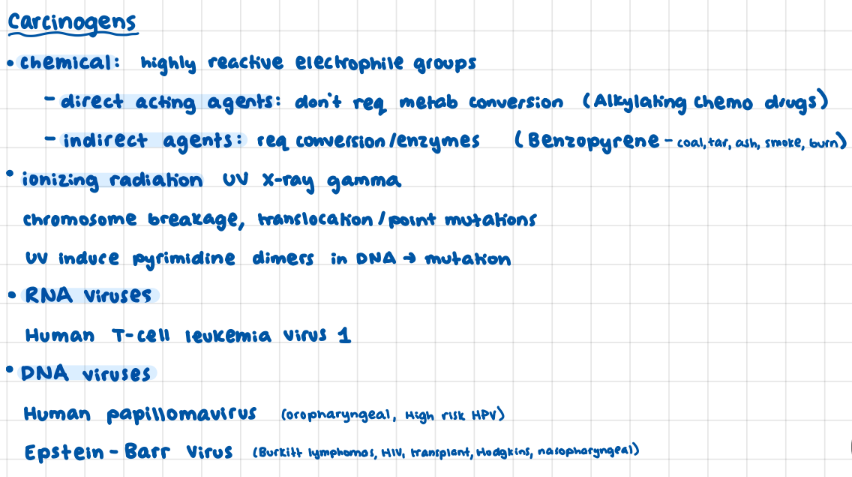 Carcinogens
• chemical: highly reactive electrophile groups
- direct acting agents: don't req metab conversion (Alkylating chemo drugs)
- indirect agents: req conversion/enzymes (Benzopyrene - coal, tar, ash, smoke, burn)
• ionizing radiation UV X-ray gamma
chromosome breakage, translocation/point mutations
UV induce pyrimidine dimers in DNA → mutation
• RNA viruses
Human T-cell leukemia virus 1
• DNA viruses
Human papillomavirus (oropharyngeal, High risk HPV)
Epstein-Barr Virus (Burkitt lymphomas, HIV, transplant, Hodgkins, nasopharyngeal)